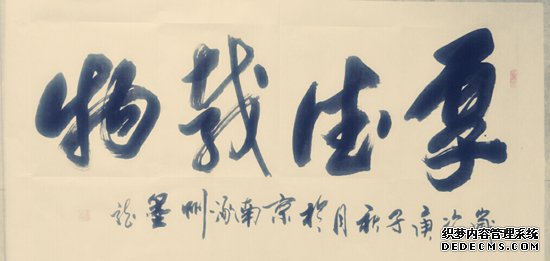 厚德载物
岁次庚子秋月於京南涿州墨龙
织梦内容管理系统
DEDECMS.COM